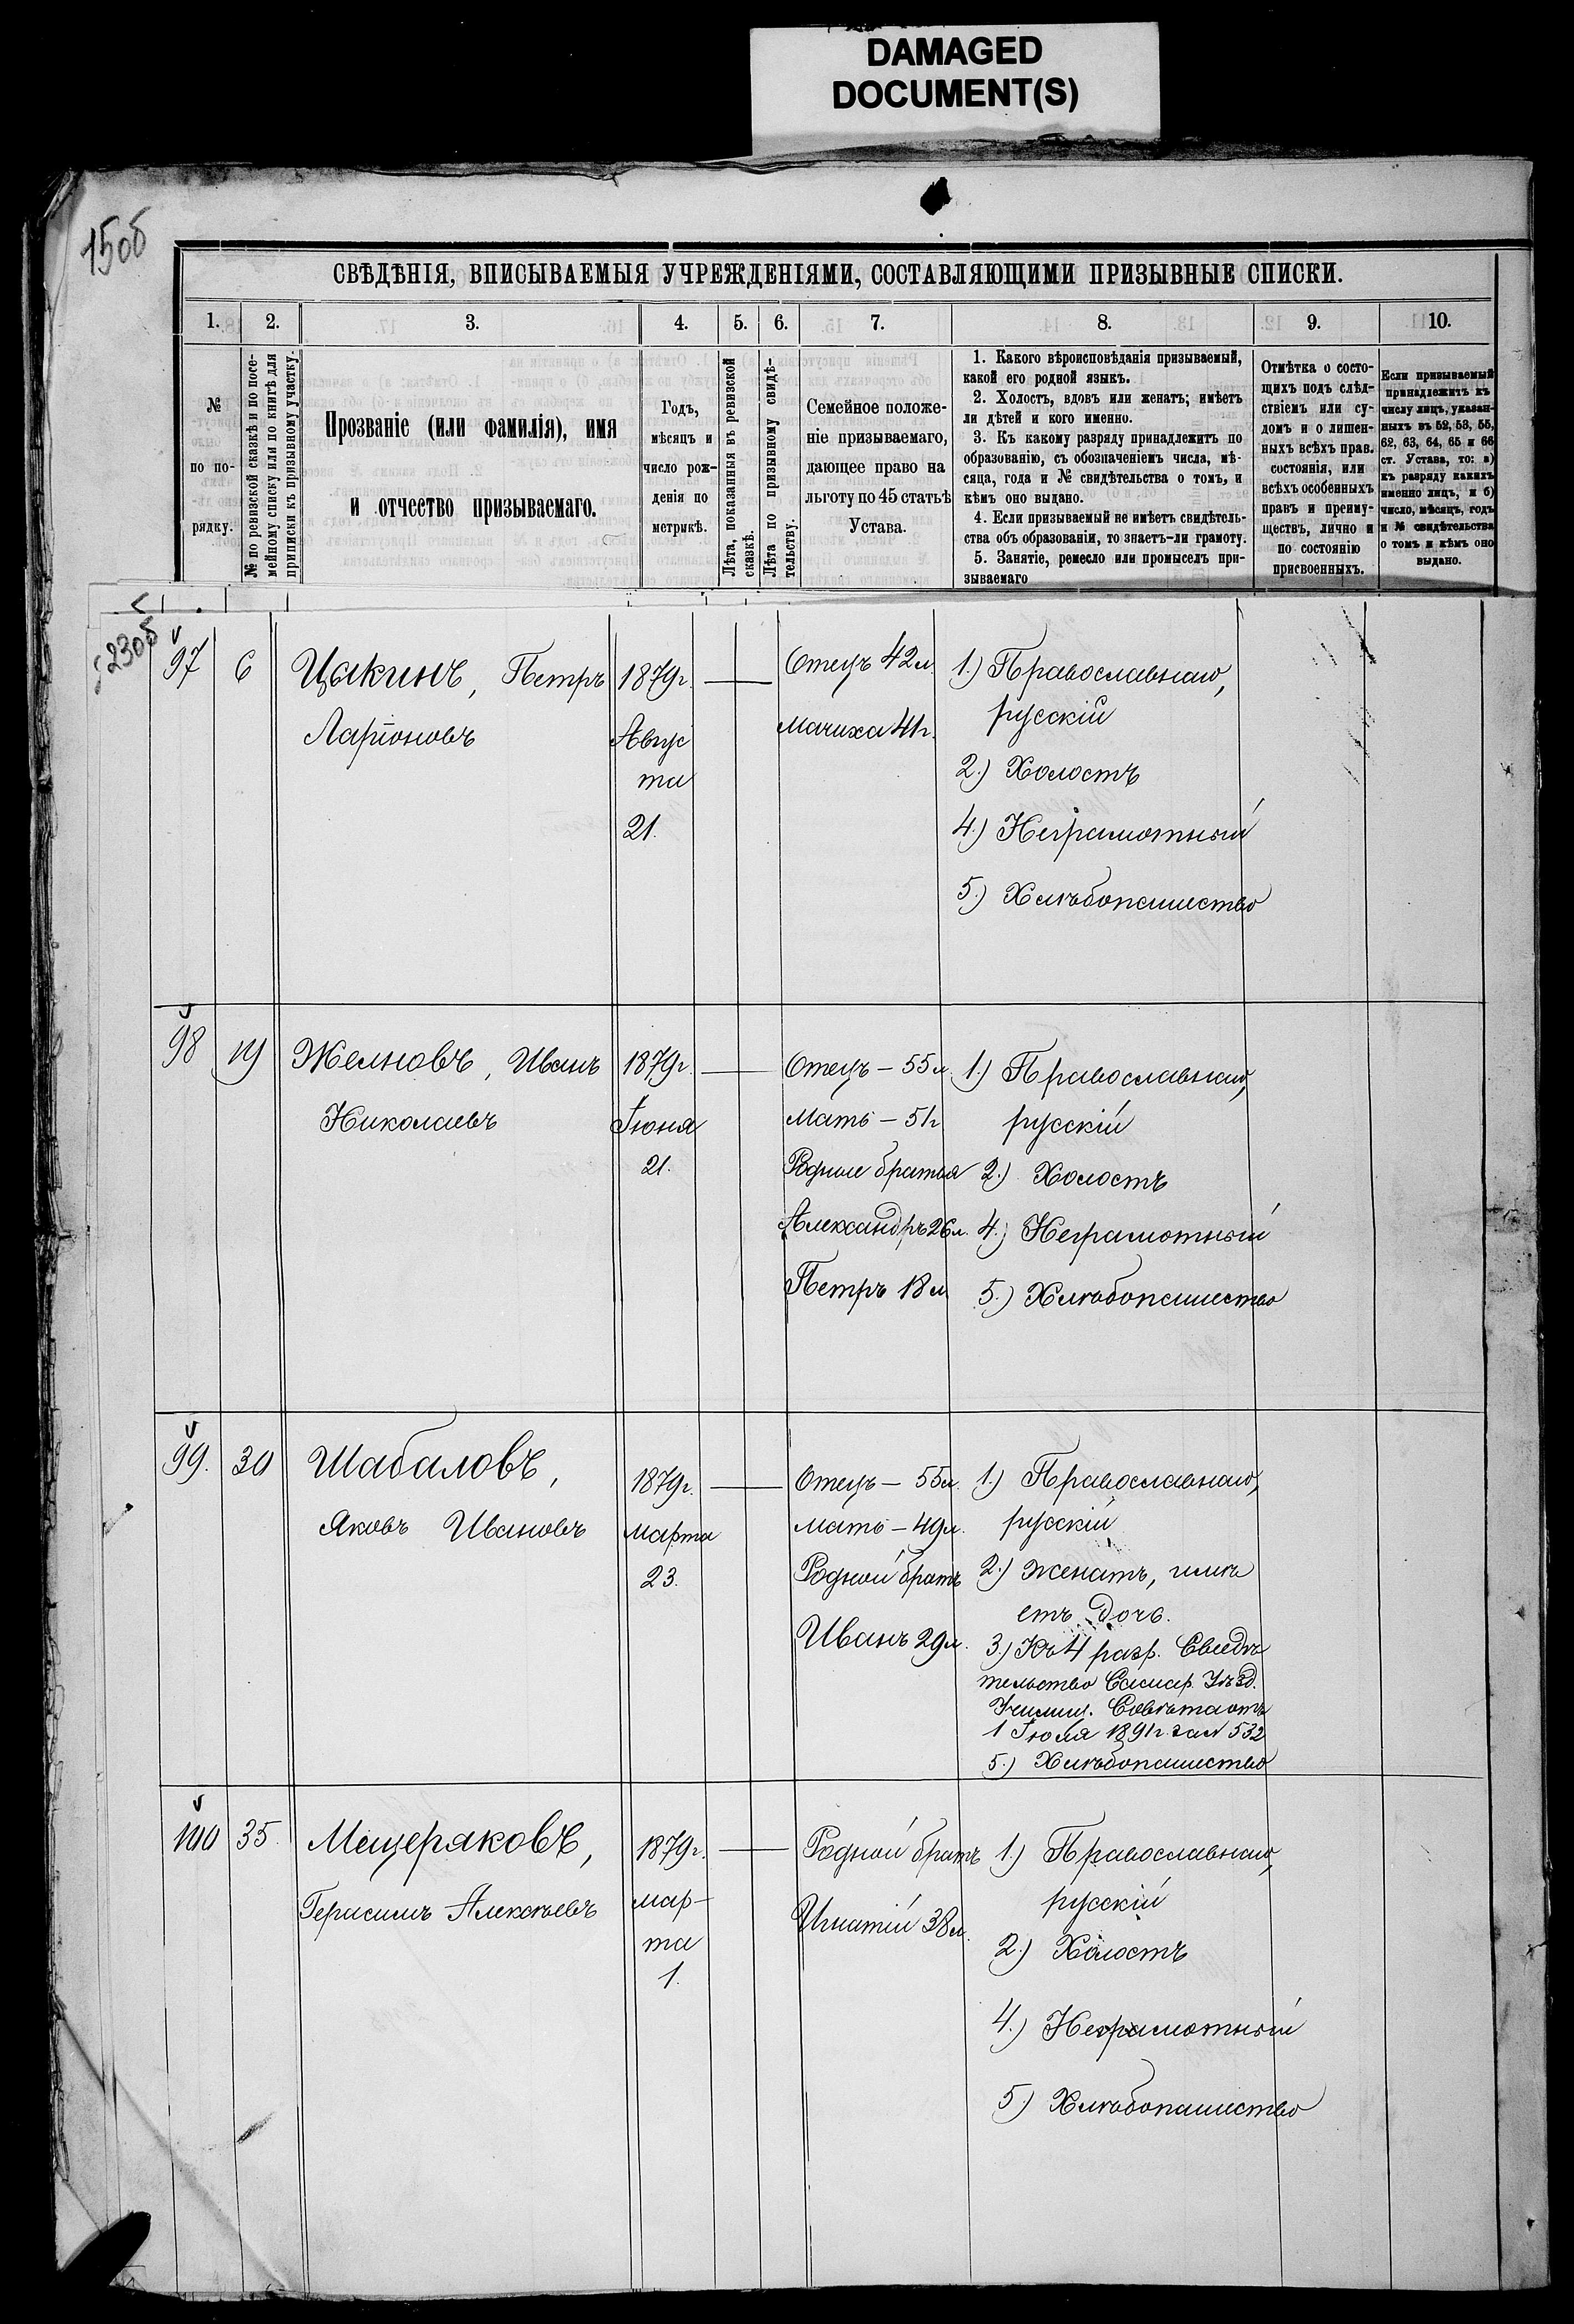 DAMAGED
DOCUMENT(S)
150б
СВѢДѢНІЯ, ВПИСЫВАЕМЫЯ УЧРЕЖДЕНІЯМИ, СОСТАВЛЯЮЩИМИ ПРИЗЫВНЫЕ СПИСКИ.
1. 2. 3. 4. 5. 6. 7. 8. 9. 10.
№
по по-
рядку.
№ по ревизской сказкѣ и по посе-
мейному списку или по книгѣ для
приписки къ призывному участку.
Прозваніе (или фамилія), имя
и отчество призываемаго.
Годъ,
мѣсяцъ и
число рож-
денія по
метрикѣ.
Лѣта, показанныя въ ревизской
сказкѣ.
Лѣта по призывному свидѣ-
тельству.
Семейное положе-
ніе призываемаго,
дающее право на
льготу по 45 статьѣ
Устава.
1. Какого вѣроисповѣданія призываемый,
какой его родной языкъ.
2. Холостъ, вдовъ или женатъ; имѣетъ
ли дѣтей и кого именно.
3. Къ какому разряду принадлежитъ по
образованію, съ обозначеніемъ числа, мѣ-
сяца, года и № свидѣтельства о томъ, и
кѣмъ оно выдано.
4. Если призываемый не имѣетъ свидѣтель-
ства объ образованіи, то знаетъ-ли грамоту.
5. Занятіе, ремесло или промыселъ при-
зываемаго
Отмѣтка о состо-
щихъ подъ слѣд-
ствіемъ или су-
домъ и о лишен-
ныхъ всѣхъ прав.
состоянія, или
всѣхъ особенныхъ
правъ и преиму-
ществъ, лично и
по состоянію
присвоенныхъ.
Если призываемый
принадлежитъ къ
числу лицъ, указан-
ныхъ въ 52, 53, 55,
62, 63, 64, 65 и 66
ст. Устава, то: а)
къ разряду какихъ
именно лицъ, и б)
число, мѣсяцъ, годъ
и № свидѣтельства
о томъ и кѣмъ оно
выдано.
230б
97
6
Цакинъ, Петръ
Ларіоновъ
1879г.
Авгус
та
21.
Отецъ 42л.
Мачиха 41г.
1.) Православнаго,
русскій
2.) Холостъ
4.) Неграмотный
5.) Хлѣбопашество
98
19
Желновъ, Иванъ
Николаевъ
1879г.
Іюня
21.
Отецъ – 55л.
Мать – 51г
Родные братья
Александръ 26л.
Петръ 18л
1.) Православнаго,
русскій
2.) Холостъ
4.) Неграмотный
5.) Хлѣбопашество
99.
30
Шабаловъ,
Яковъ Ивановъ
1879г.
Марта
23.
Отецъ – 55л.
Мать – 49л.
Родной братъ
Иванъ 29л.
1.) Православнаго,
русскій
2.) Женатъ, имѣ
етъ дочь.
3.) Къ 4 разр. Свидѣ
тельство Самар. Уѣзд.
Училищ. Совѣта отъ
1 Іюля 1891г. за № 532
5.) Хлѣбопашество
100
35.
Мещеряковъ,
Герасимъ Алексѣевъ
1879г.
Мар-
та
1.
Родной братъ
Игнатій 38л.
1.) Православнаго,
русскій
2.) Холостъ
4.) Неграмотный
5.) Хлѣбопашество